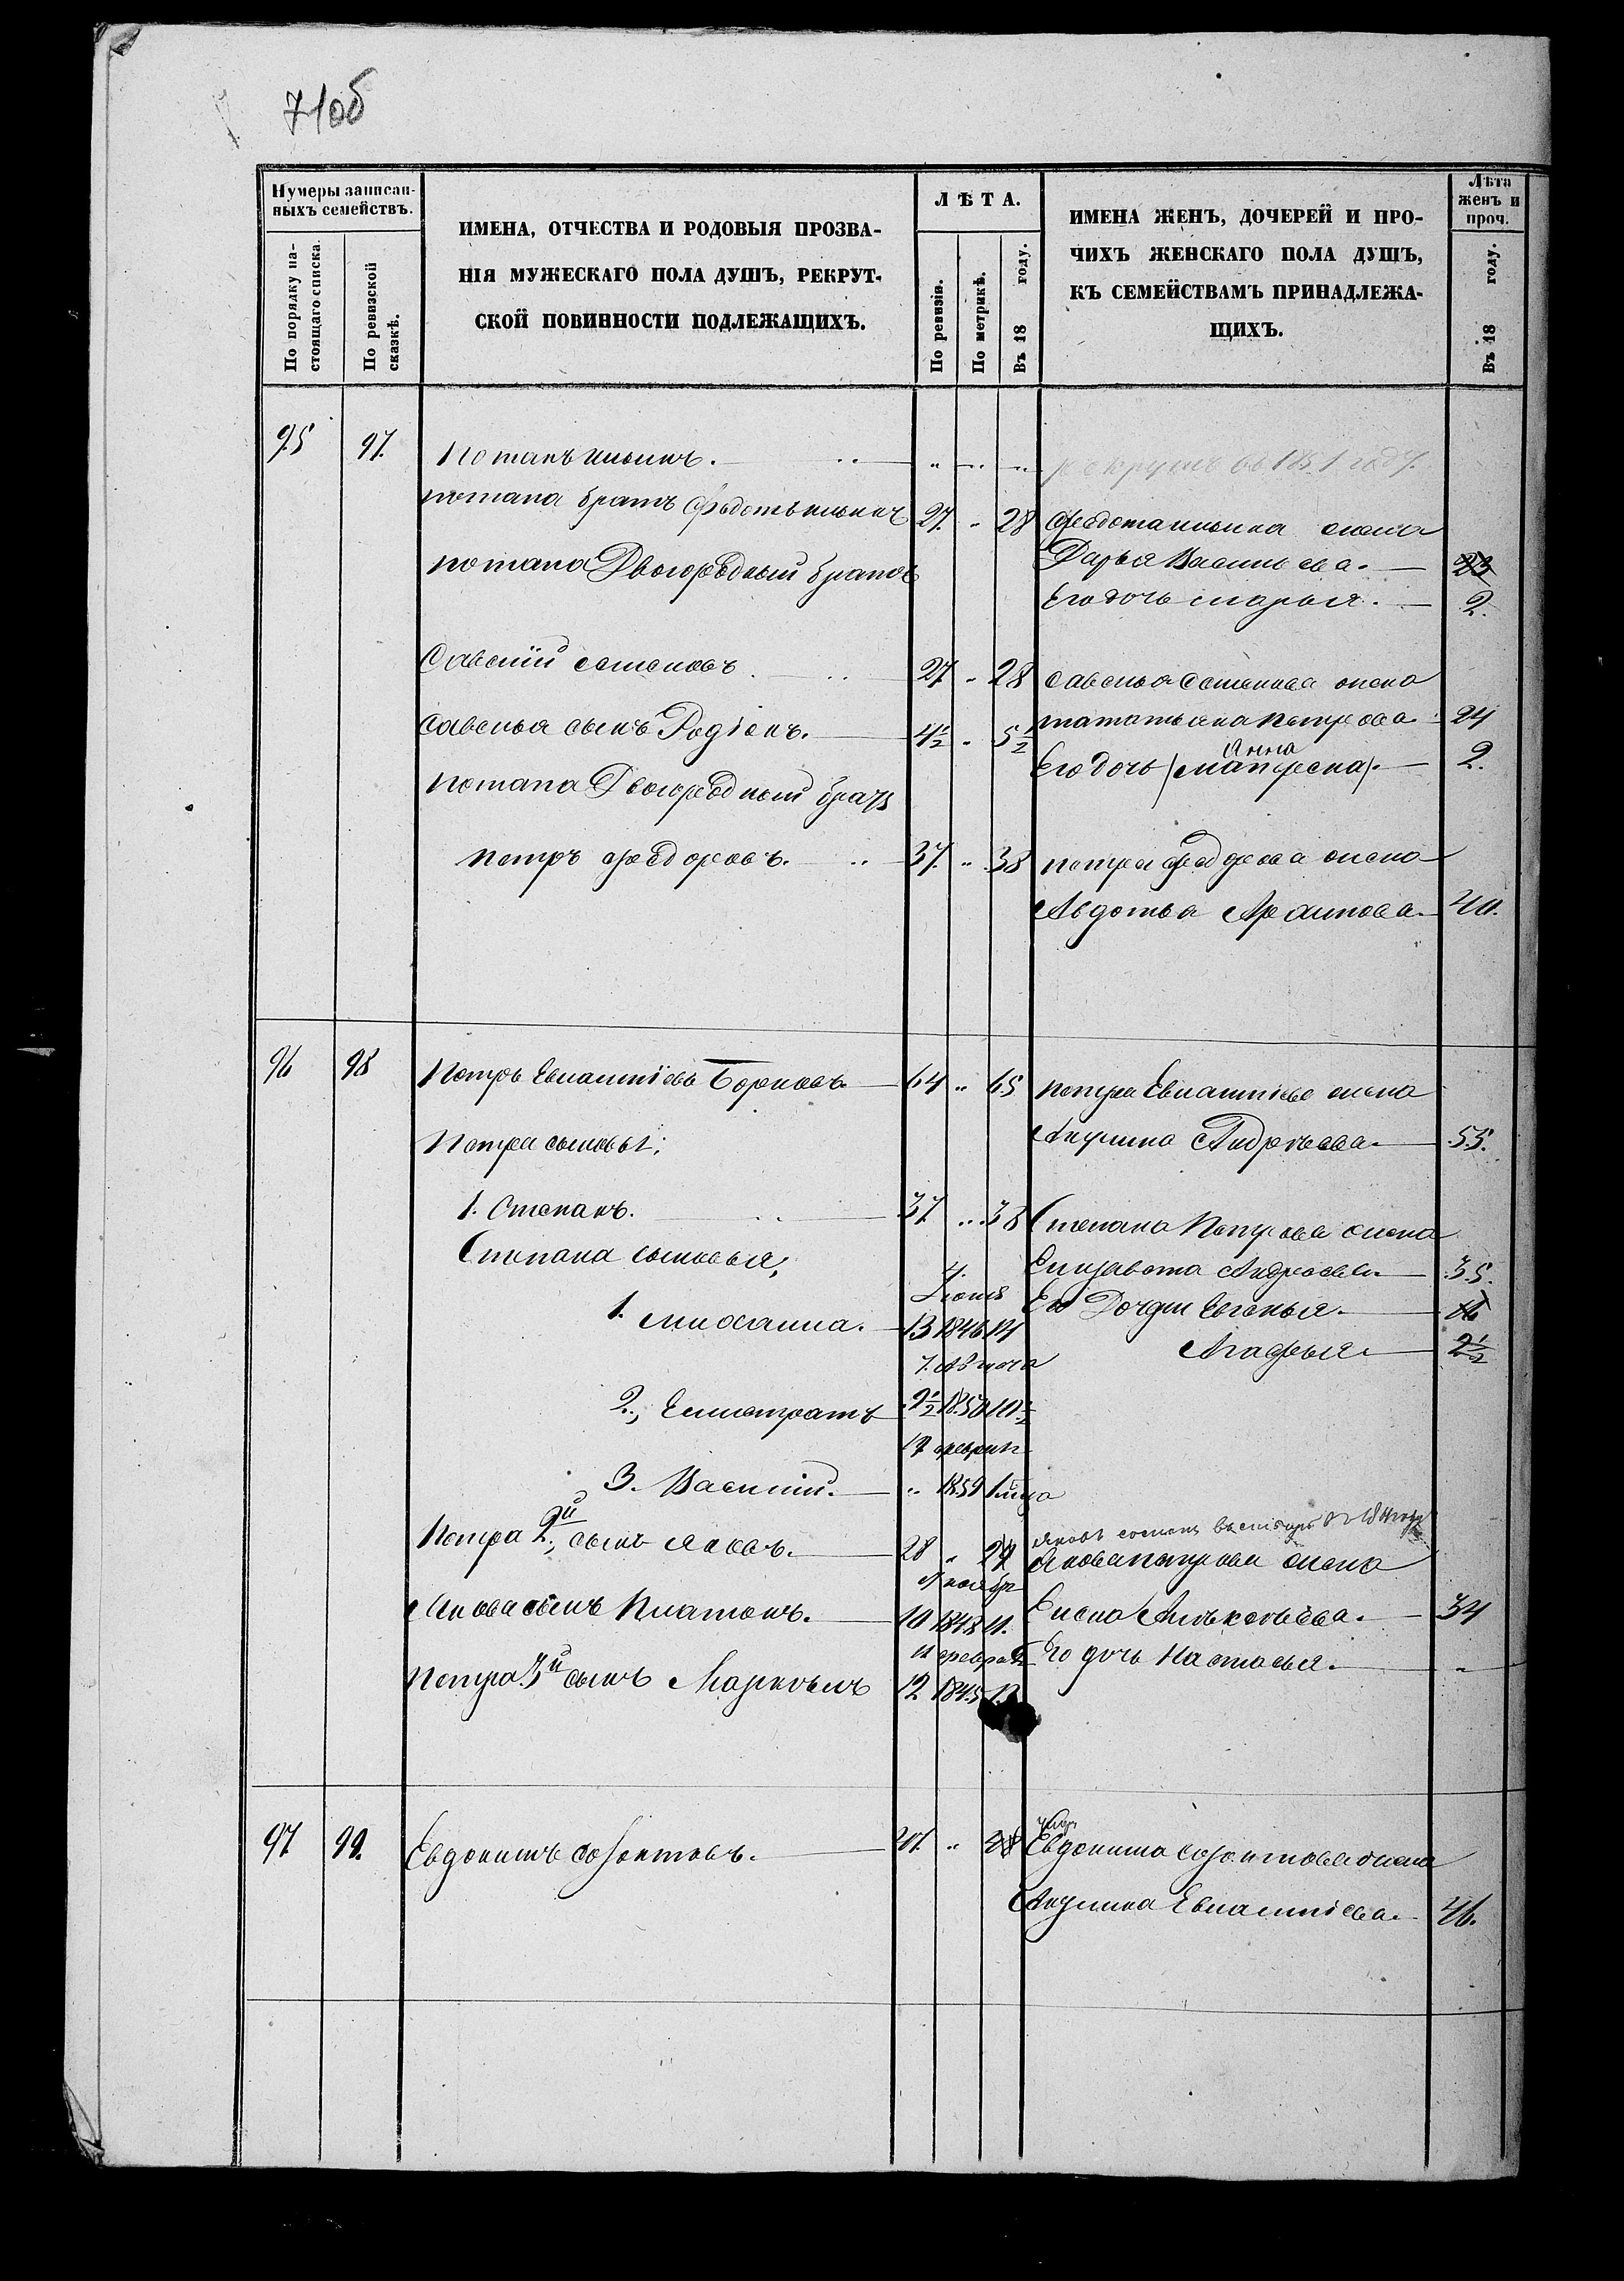 71об
Нумеры записан-
ныхъ семействъ.
По порядку на-
стоящаго списка.
По ревизской
сказкѣ.
ИМЕНА, ОТЧЕСТВА И РОДОВЫЯ ПРОЗВА-
НІЯ МУЖЕСКАГО ПОЛА ДУШЪ, РЕКРУТ-
СКОЙ ПОВИННОСТИ ПОДЛЕЖАЩИХЪ.
ЛѢТА.
По ревизіи.
По метрикѣ.
Въ 18 году.
ИМЕНА ЖЕНЪ, ДОЧЕРЕЙ И ПРО-
ЧИХЪ ЖЕНСКАГО ПОЛА ДУШЪ,
КЪ СЕМЕЙСТВАМЪ ПРИНАДЛЕЖА-
ЩИХЪ.
Лѣта
женъ и
проч.
Въ 18 году.
95 97. Потапъ Ильинъ. рекрутъ въ 1851 году.
потапа братъ Федотъ ильинъ 27. " 28 Федота ильина жена
Дарья Васильева. 23
потапа Двоюродный братъ
Его дочь марья. 2.
Савелій семеновъ 27 " 28 Савелья Семенова жена
татьяна петрова. 24
Савелья сынъ Родіонъ. 4½ " 5½
Анна
Его дочь (матрена). 2.
потапа Двоюродный братъ
петръ федоровъ. 37. " 38 петра федорова жена
Авдотья Архипова. 40.
96 98 Петръ Евлампіевъ Борковъ. 64 " 65 петра Евлампіева жена
Акулина Андреева. 55.
Петра сыновья:
1. Степанъ. 37. " 38 Степана Петрова жена
Степана сыновья;
Елизавета Андреева. 35.
4. Іюня
Его Дочери Евгенья.
1. михаила. 13 1846 14
Агафья. 2½
7. Августа
2., Елистратъ 9½ 1850 10½
17 февраля
3. Василій. " 1859 1.
Петра 2й, сынъ Яковъ. 28 " 29 Якова петрова жена
Ноября
Якова сынъ Платонъ. 10 1848 11. Елена Алексеева. 34
11 февраля
Его дочь Настасья. "
Петра 3й сынъ Маркелъ 12 1845 13
97 99. Евдокимъ созонтовъ. 47. " 48 Евдокима созонтова жена
Акулина Евлампіева. 46.